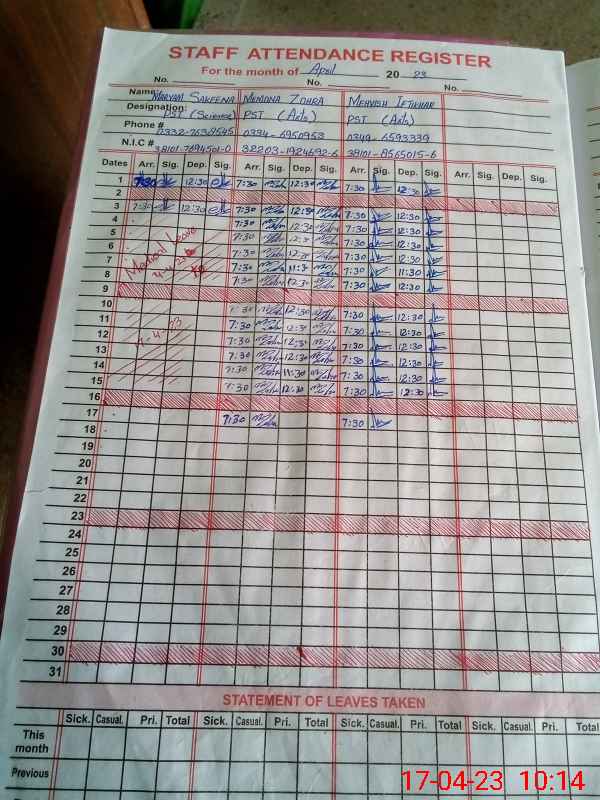 STAFF ATTENDANCE REGISTER
For the month of April 20 23
No. No. No.
Name: Maryam Sakeena Memona Zohra Mehvish Iftikhar
Designation: PST (Science) PST (Arts) PST (Arts)
Phone # 0334-6950953 0349-6593339
N.I.C # 38101-7694501-0 32203-1924692-6 38101-8565015-6
Dates Arr. Sig. Dep. Sig. Arr. Sig. Dep. Sig. Arr. Sig. Dep. Sig. Arr. Sig. Dep. Sig.
1 7:30 12:30 7:30 12:30 7:30 12:30
2
3 7:30 12:30 7:30 12:30 7:30 12:30
4 7:30 12:30 7:30 12:30
5 7:30 12:30 7:30 12:30
6 7:30 12:30 7:30 12:30
7 Leave 7:30 11:30 7:30 11:30
8 7:30 12:30 7:30 12:30
9
10 7:30 12:30 7:30 12:30
11 7:30 12:30 7:30 12:30
12 7:30 12:30 7:30 12:30
13 7:30 12:30 7:30 12:30
14 7:30 11:30 7:30 12:30
15 7:30 12:30 7:30 12:30
16
17 7:30 7:30
18
19
20
21
22
23
24
25
26
27
28
29
30
31
STATEMENT OF LEAVES TAKEN
Sick. Casual. Pri. Total Sick. Casual. Pri. Total Sick. Casual. Pri. Total Sick. Casual. Pri. Total
This month
Previous
17-04-23 10:14